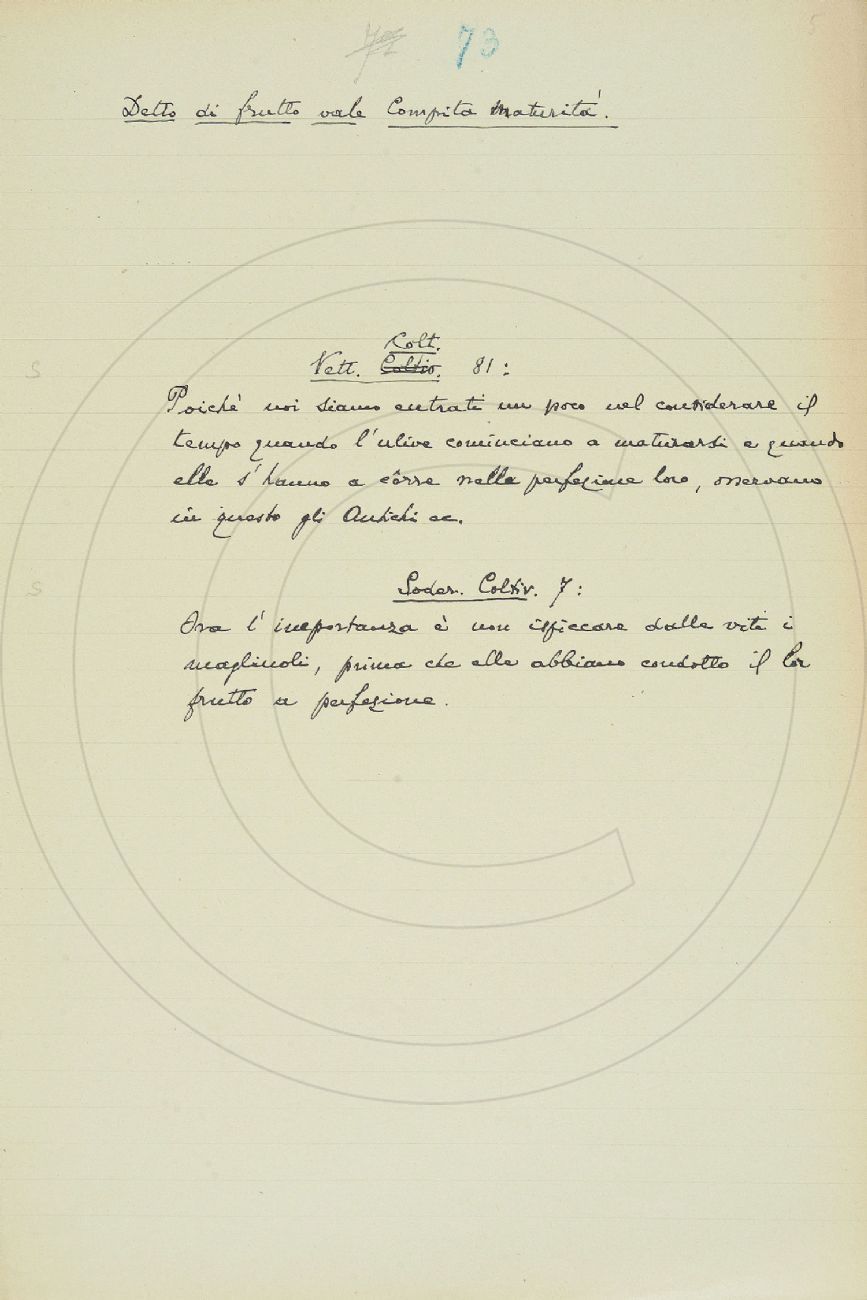 73
Detto di frutto vale Compita Maturità.
Colt.
Vett. Coltiv. 81:
S
Poichè noi siamo entrati un poco nel considerare il
tempo quando l'ulive cominciano a maturarsi e quando
elle s'hanno a côrre nella perfezione loro, osservano
in questo gli Antichi ec.
S
Soder. Coltiv. 7:
Ora l'importanza è non ispiccare dalle viti i
magliuoli, prima che elle abbiano condotto il lor
frutto a perfezione.